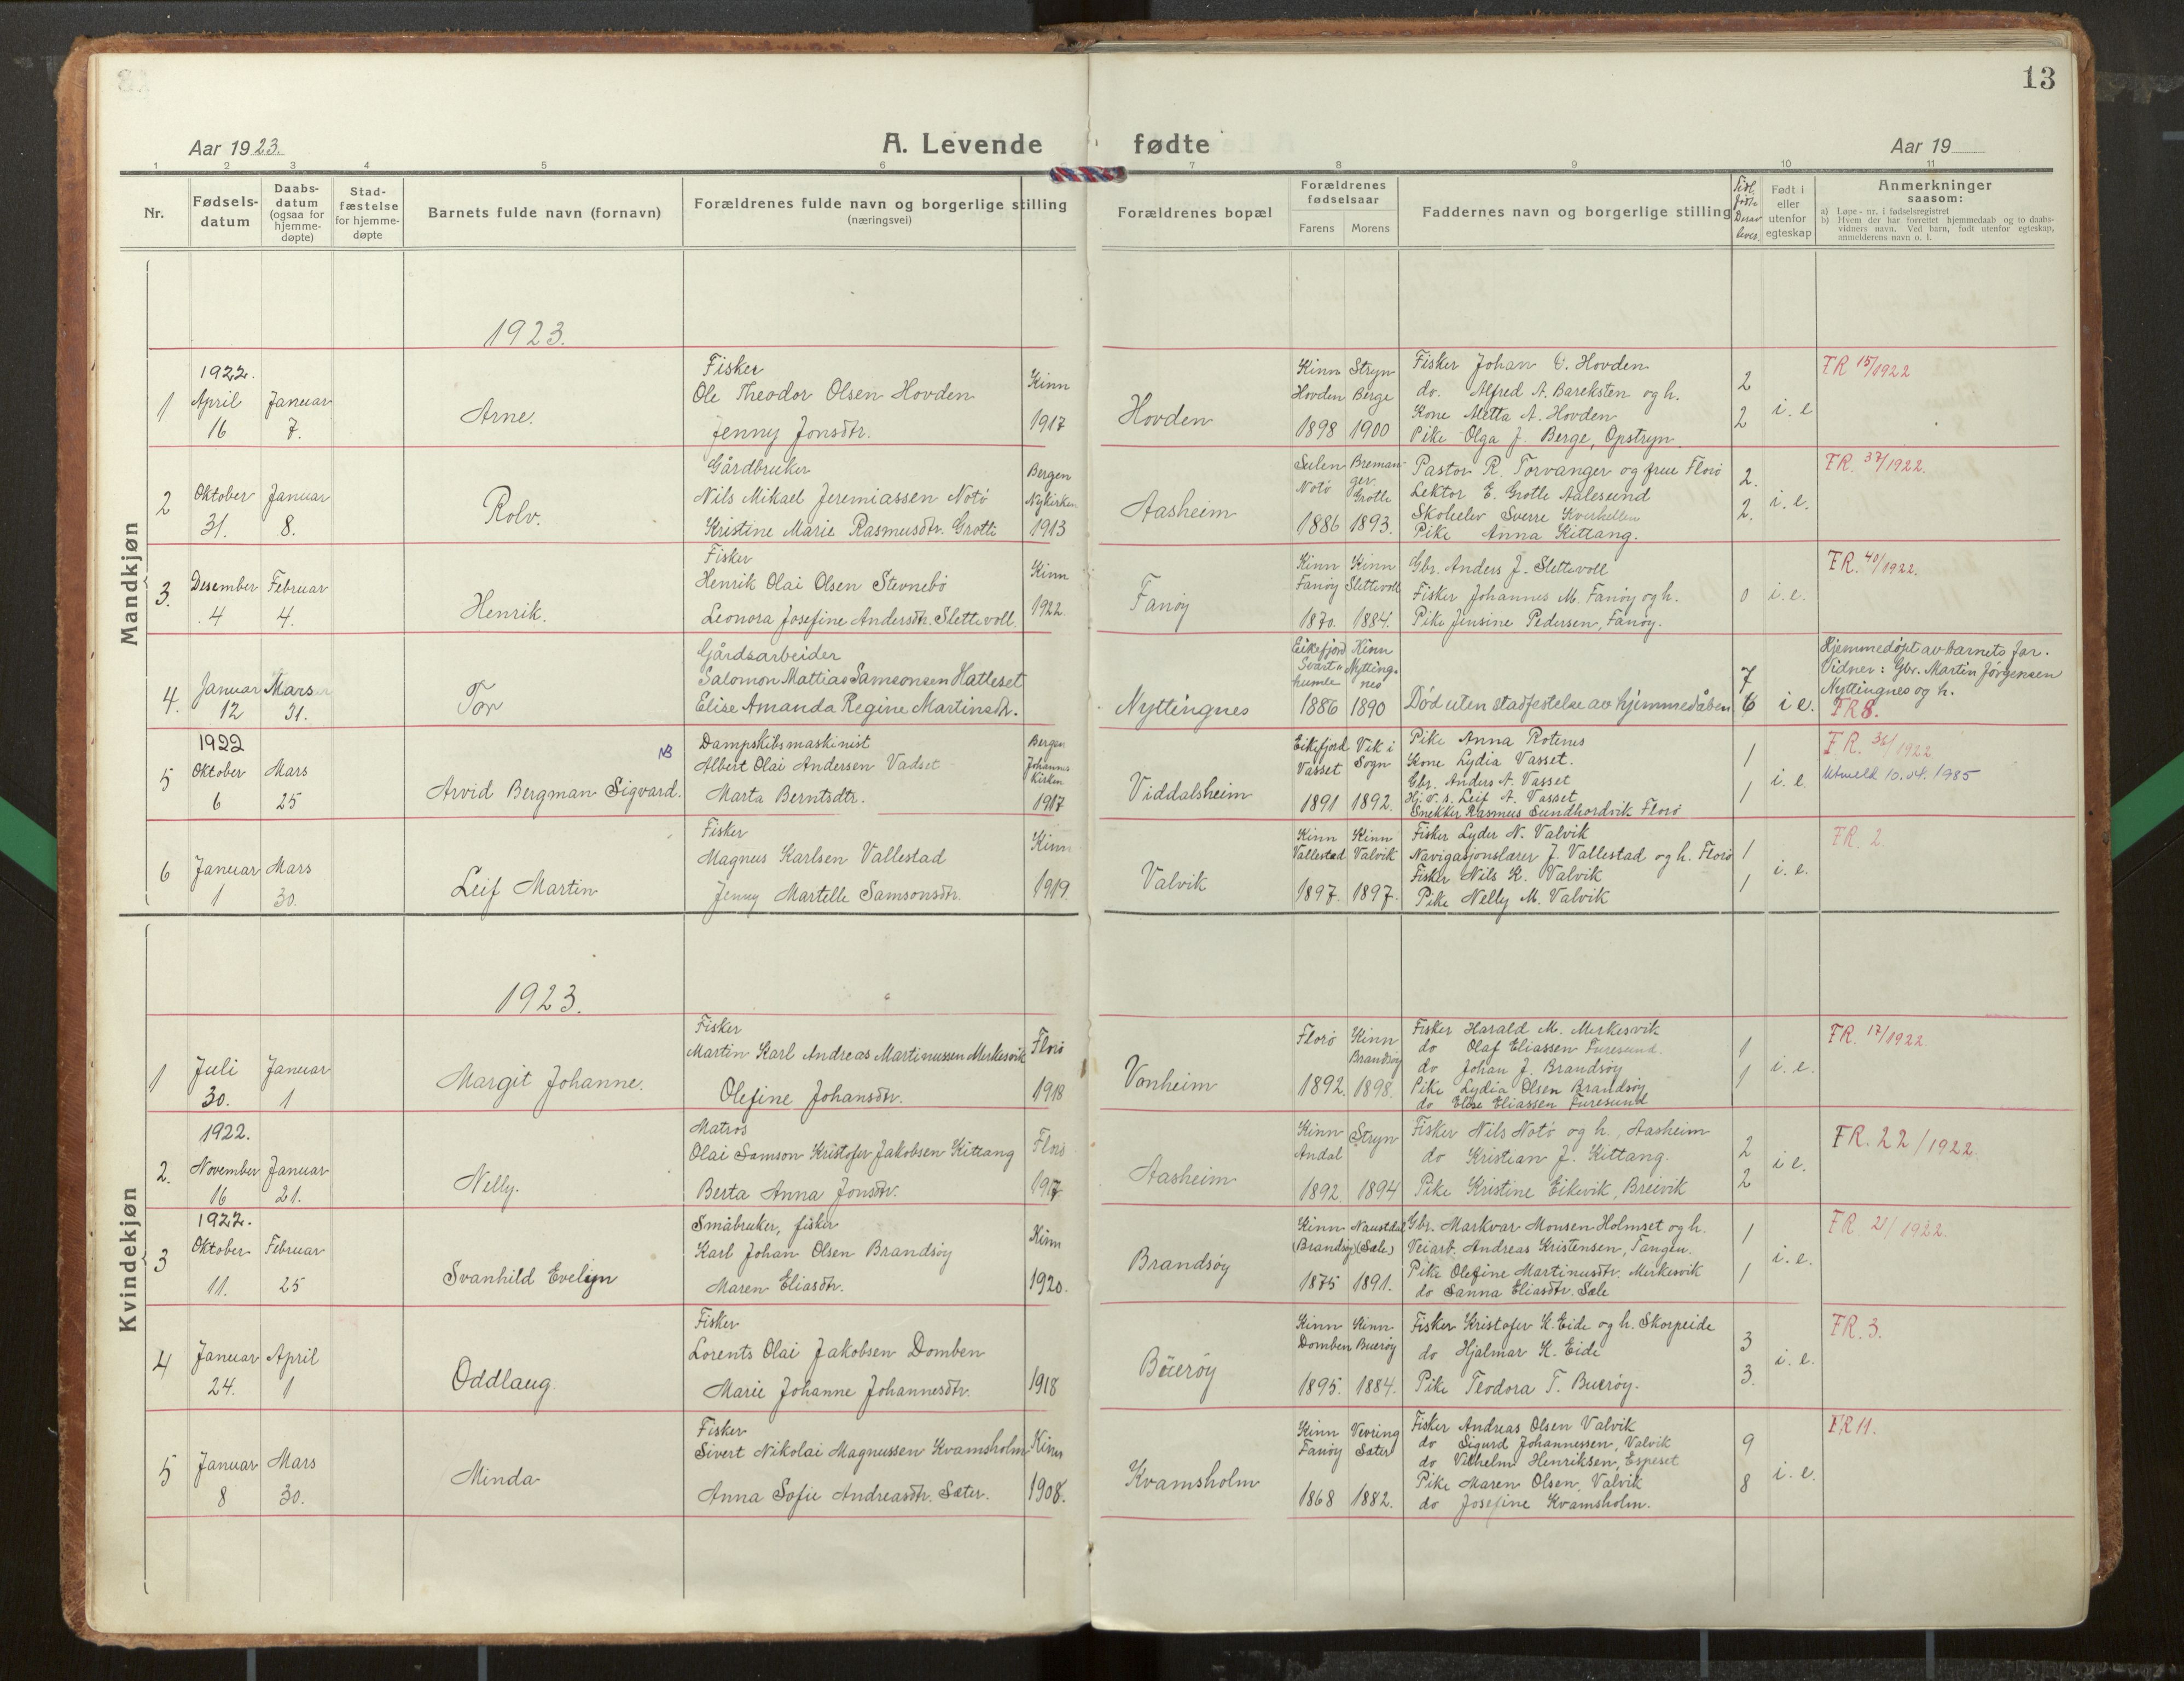 13
Aar 1923.
A. Levende fødte
Aar 19
1 2 3 4 5 6 7 8 9 10 11
Nr.
Fødsels-
datum
Daabs-
datum
(ogsaa for
hjemme-
døpte)
Stad-
fæstelse
for hjemme-
døpte
Barnets fulde navn (fornavn)
Forældrenes fulde navn og borgerlige stilling
(næringsvei)
Forældrenes bopæl
Forældrenes
fødselsaar
Farens Morens
Faddernes navn og borgerlige stilling
Tidl.
fødte
Derav
leves
Født i
eller
utenfor
egteskap
Anmerkninger
saasom:
a) Løpe-nr. i fødselsregistret
b) Hvem der har forrettet hjemmedaab og to daabs-
vidners navn. Ved barn, født utenfor egteskap,
anmelderens navn o. l.
Mandkjøn
1923.
1
1922.
April
16
Januar
7.
Arne.
Fisker
Ole Theodor Olsen Hovden
Jenny Jonsdtr.
Kinn
1917
Hovden
Kinn
Hovden
1898
Stryn
Berge
1900
Fisker Johan O. Hovden
do. Alfred A. Bareksten og h.
Kone Metta A. Hovden
Pike Olga J. Berge, Opstryn.
2
2
i. e
FR 15/1922
2
Oktober
31.
Januar
8.
Rolv.
Gårdbruker
Nils Mikael Jeremiassen Notö
Kristine Marie Rasmusdtr. Grotli
Bergen
Nykirken
1913
Aasheim
Sulen
Notö
1886
Breman-
ger.
Grotle
1893.
Pastor R. Torvanger og frue Florö
Lektor E. Grotle Aalesund
Skoleelev Sverre Kverhellen
Pike Anna Kittang.
2.
2.
i. e.
FR. 37/1922.
3.
Desember
4
Februar
4.
Henrik.
Fisker
Henrik Olai Olsen Stevnebö
Leonora Josefine Andersdtr. Slettevoll.
Kinn
1922.
Fanöy
Kinn
Fanöy
1870.
Kinn
Slettevoll
1884.
Gbr. Anders J. Slettevoll
Fisker Johannes M. Fanöy og h.
Pike Jensine Pedersen, Fanöy.
0
i. e.
FR. 40/1922.
4.
Januar
12
Mars
31.
Tor
Gårdsarbeider
Salomon Mattias Samsonsen Hatleset
Elise Amanda Regine Martinsdtr.
Nyttingnes
Eikefjord
Svart-
humle
1886
Kinn
Nytting-
nes
1890
Död uten stadfestelse av hjemmedåben
7
6
i e.
Hjemmedöpt av barnets far.
Vidner: Gbr. Martin Jörgensen
Nyttingnes og h.
FR 8.
5
1922
Oktober
6
Mars
25
NB
Arvid Bergman Sigvard.
Dampskibsmaskinist
Albert Olai Andersen Vadset
Marta Berntsdtr.
Bergen
Johannes
Kirken
1917
Viddalsheim
Eikefjord
Vasset
1891
Vik i
Sogn
1892.
Pike Anna Rotenes
Kone Lydia Vasset.
Gbr. Anders A. Vasset
Hj. v. s. Leif A. Vasset
Snekker Rasmus Sundhordvik Florö
1
1
i. e.
FR. 36/1922
Utmeld 10.04.1985
6
Januar
1
Mars
30.
Leif Martin
Fisker
Magnus Karlsen Vallestad
Jenny Martelle Samsonsdtr.
Kinn
1919.
Valvik
Kinn
Vallestad
1897.
Kinn
Valvik
1897.
Fisker Lyder N. Valvik
Navigasjonslærer J. Vallestad og h. Florö
Fisker Nils K. Valvik
Pike Nelly M. Valvik
1
1
i. e.
FR. 2.
Kvindekjøn
1923.
1
Juli
30.
Januar
1
Margit Johanne.
Fisker
Martin Karl Andreas Martinussen Merkesvik
Olefine Johansdtr.
Florö
1918
Vonheim
Florö
1892.
Kinn
Brandsöy
1898.
Fisker Harald M. Merkesvik
do Olaf Eliassen Furesund.
do Johan J. Brandsöy
Pike Lydia Olsen Brandsöy
do Elise Eliassen Furesund
1
1
i. e.
FR. 17/1922.
2.
1922.
November
16
Januar
21.
Nelly.
Matros
Olai Samson Kristofer Jakobsen Kittang
Berta Anna Jonsdtr.
Florö
1917
Aasheim
Kinn
Andal
1892.
Stryn
1894
Fisker Nils Notö og h., Aasheim
do Kristian J. Kittang.
Pike Kristine Eikevik, Breivik
2
2
i e.
FR. 22/1922.
3
1922.
Oktober
11.
Februar
25
Svanhild Evelyn
Småbruker, fisker
Karl Johan Olsen Brandsöy
Maren Eliasdtr.
Kinn
1920.
Brandsöy
Kinn
(Brandsöy)
1875
Naustdal
(Sæle)
1891.
Gbr. Markvar Monsen Holmset og h.
Veiarb. Andreas Kristensen, Tangen.
Pike Olefine Martinusdtr. Merkesvik
do Sanna Eliasdtr. Sæle
1
1
i. e.
FR 21/1922.
4
Januar
24.
April
1
Oddlaug.
Fisker
Lorents Olai Jakobsen Domben
Marie Johanne Johannesdtr.
1918
Bueröy
Kinn
Domben
1895.
Kinn
Bueröy
1884.
Fisker Kristofer K. Eide og h. Skorpeide
do Hjalmar K. Eide
Pike Teodora T. Bueröy.
3
3.
i. e.
FR. 3.
5
Januar
8
Mars
30.
Minda
Fisker
Sivert Nikolai Magnussen Kvamsholm
Anna Sofie Andreasdtr. Sæter.
Kinn
1908.
Kvamsholm
Kinn
Fanöy
1868
Vevring
Sæter
1882.
Fisker Andreas Olsen Valvik
do Sigurd Johannessen, Valvik
do Vilhelm Henriksen, Espeset
Pike Maren Olsen, Valvik
do Josefine Kvamsholm.
9
8
i. e.
FR 11.